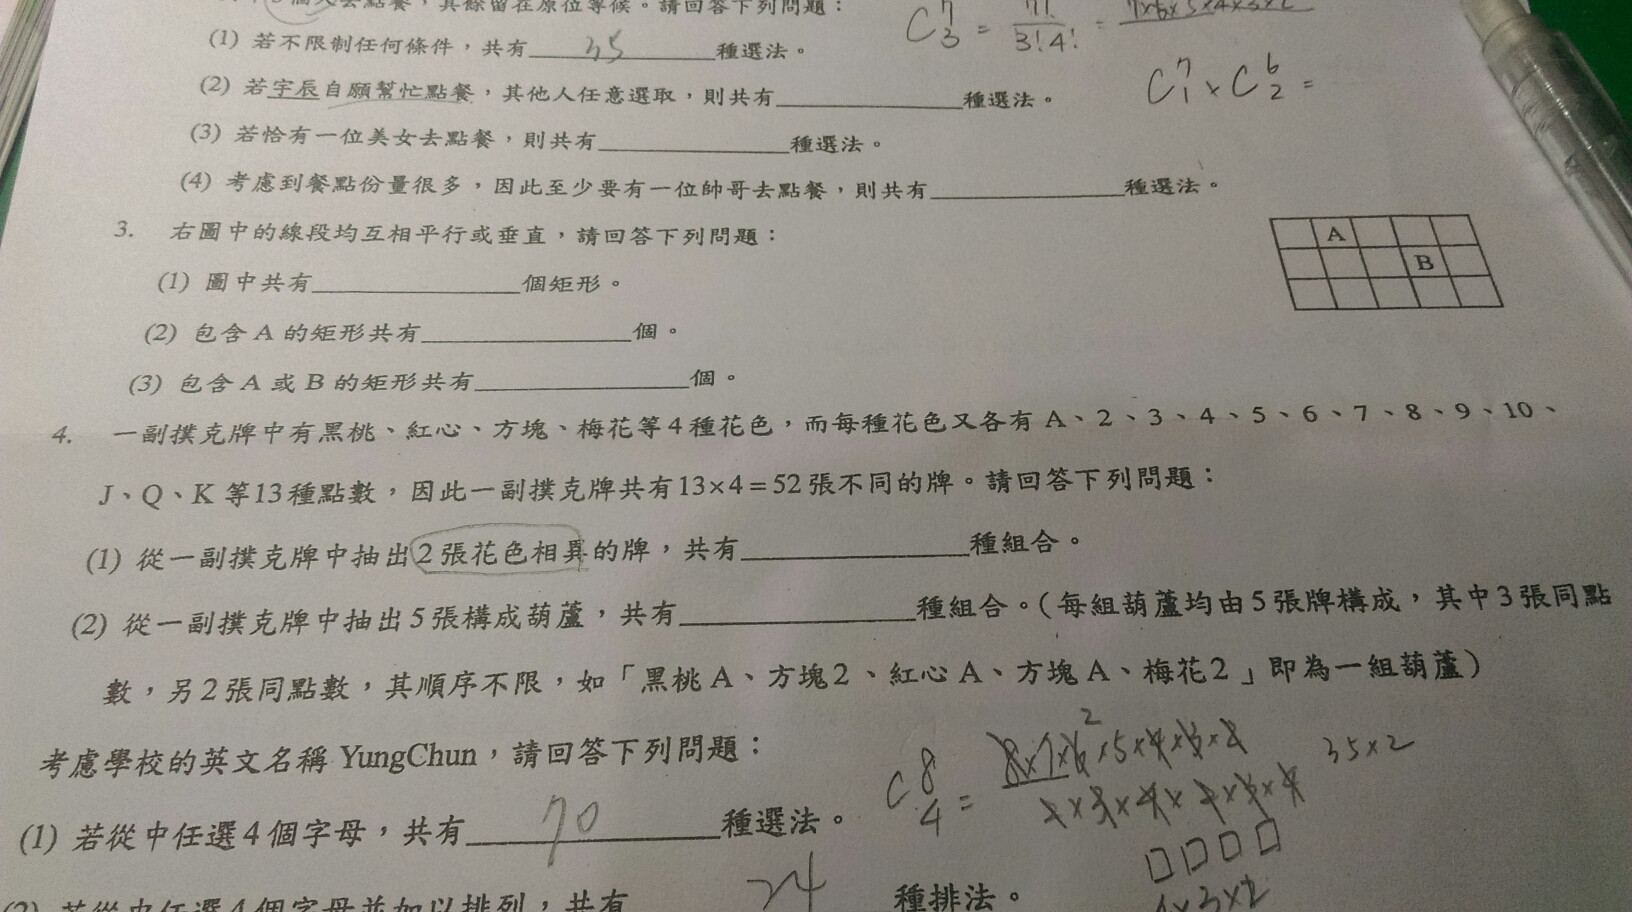 個人去點餐，其餘留在原位等候。請回答下列問題：
C⁷₃ = 7!/3!4! = 7×6×5×4×3×2
(1) 若不限制任何條件，共有 35 種選法。
(2) 若宇辰自願幫忙點餐，其他人任意選取，則共有____種選法。
C⁷₁ × C⁶₂ =
(3) 若恰有一位美女去點餐，則共有____種選法。
(4) 考慮到餐點份量很多，因此至少要有一位帥哥去點餐，則共有____種選法。
3. 右圖中的線段均互相平行或垂直，請回答下列問題：
A
B
(1) 圖中共有____個矩形。
(2) 包含 A 的矩形共有____個。
(3) 包含 A 或 B 的矩形共有____個。
4. 一副撲克牌中有黑桃、紅心、方塊、梅花等4種花色，而每種花色又各有 A、2、3、4、5、6、7、8、9、10、
J、Q、K 等13種點數，因此一副撲克牌共有13×4=52張不同的牌。請回答下列問題：
(1) 從一副撲克牌中抽出2張花色相異的牌，共有____種組合。
(2) 從一副撲克牌中抽出5張構成葫蘆，共有____種組合。（每組葫蘆均由5張牌構成，其中3張同點
數，另2張同點數，其順序不限，如「黑桃 A、方塊2、紅心 A、方塊 A、梅花2」即為一組葫蘆）
考慮學校的英文名稱 YungChun，請回答下列問題：
C⁸₄ = 8×7×6×5×4×3×2
2
35×2
(1) 若從中任選4個字母，共有 70 種選法。
(2) 若從中任選4個字母並加以排列，共有 24 種排法。
4×3×2